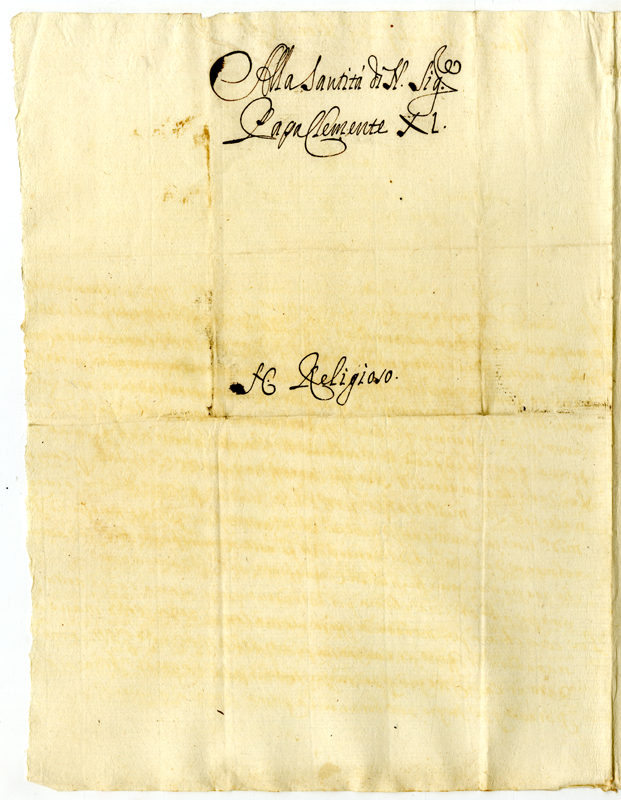 Alla Santità di N. Sig.re
Papa Clemente XI.
N. Religioso.